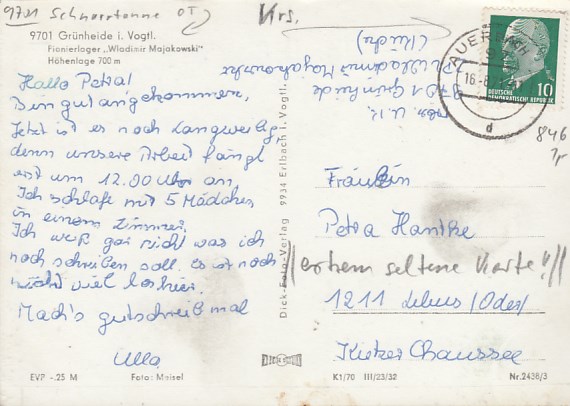 9701 Schnarrtanne OT
9701 Grünheide i. Vogtl.
Pionierlager „Wladimir Majakowski"
Höhenlage 700 m
Hallo Petra!
Bin gut angekommen,
Jetzt ist es noch langweilig,
denn unsere Arbeit fängt
erst um 12.00 Uhr an.
Ich schlafe mit 5 Mädchen
in einem Zimmer.
Ich weiß gar nicht was ich
noch schreiben soll. Es ist noch
nicht viel los hier.
Mach's gut schreib mal
Ulla
EVP -.25 M
Foto: Meisel
Dick-Foto-Verlag 9934 Erlbach i. Vogtl.
DICK
Krs.
9701 Grünheide
(Küche)
AUERBACH
16.-8
d
10
DEUTSCHE
DEMOKRATISCHE REPUBLIK
846
Fräulein
Petra Hantke
//extrem seltene Karte!//
1211 Lebus (Oder)
Kietzer Chaussee
K1/70 III/23/32
Nr. 2436/3